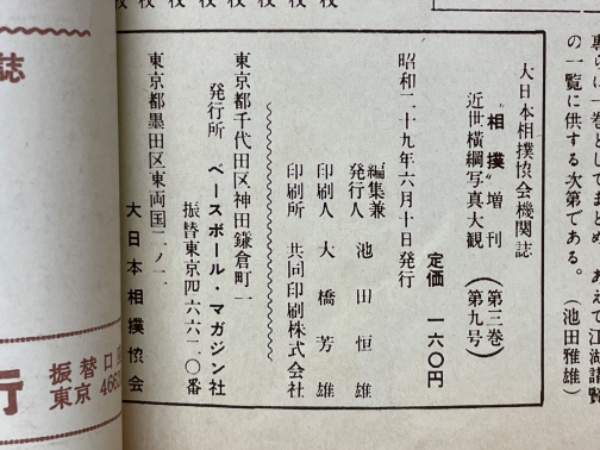 裏らに一巻としてまとめ、あえて江湖諸賢
の一覧に供する次第である。（池田雅雄）
大日本相撲協会機関誌
“相撲”増刊（第三巻）
近世橫綱写真大観（第九号）
昭和二十九年六月十日発行
定価 一六〇円
編集兼
発行人 池田恒雄
印刷人 大橋芳雄
印刷所 共同印刷株式会社
東京都千代田区神田鎌倉町一
発行所 ベースボール・マガジン社
振替東京四六六二〇番
東京都墨田区東両国二ノ一
大日本相撲協会
誌
行
振替口
東京 4662